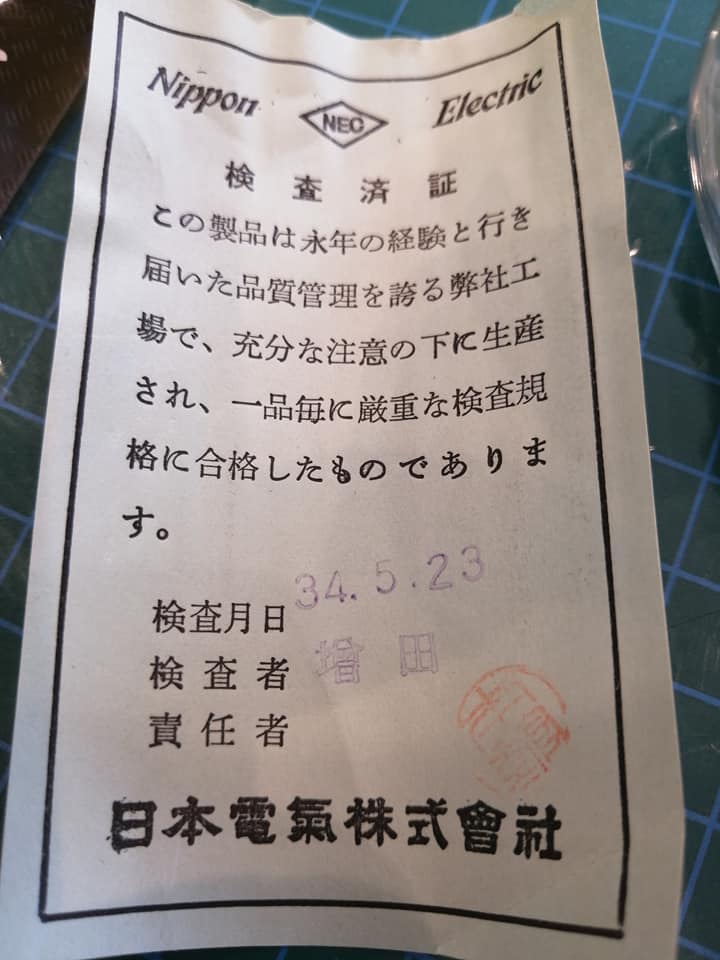 Nippon NEC Electric
検査済証
この製品は永年の経験と行き
届いた品質管理を誇る弊社工
場で、充分な注意の下に生産
され、一品毎に厳重な検査規
格に合格したものでありま
す。
検査月日 34.5.23
検査者 増田
責任者
日本電氣株式會社